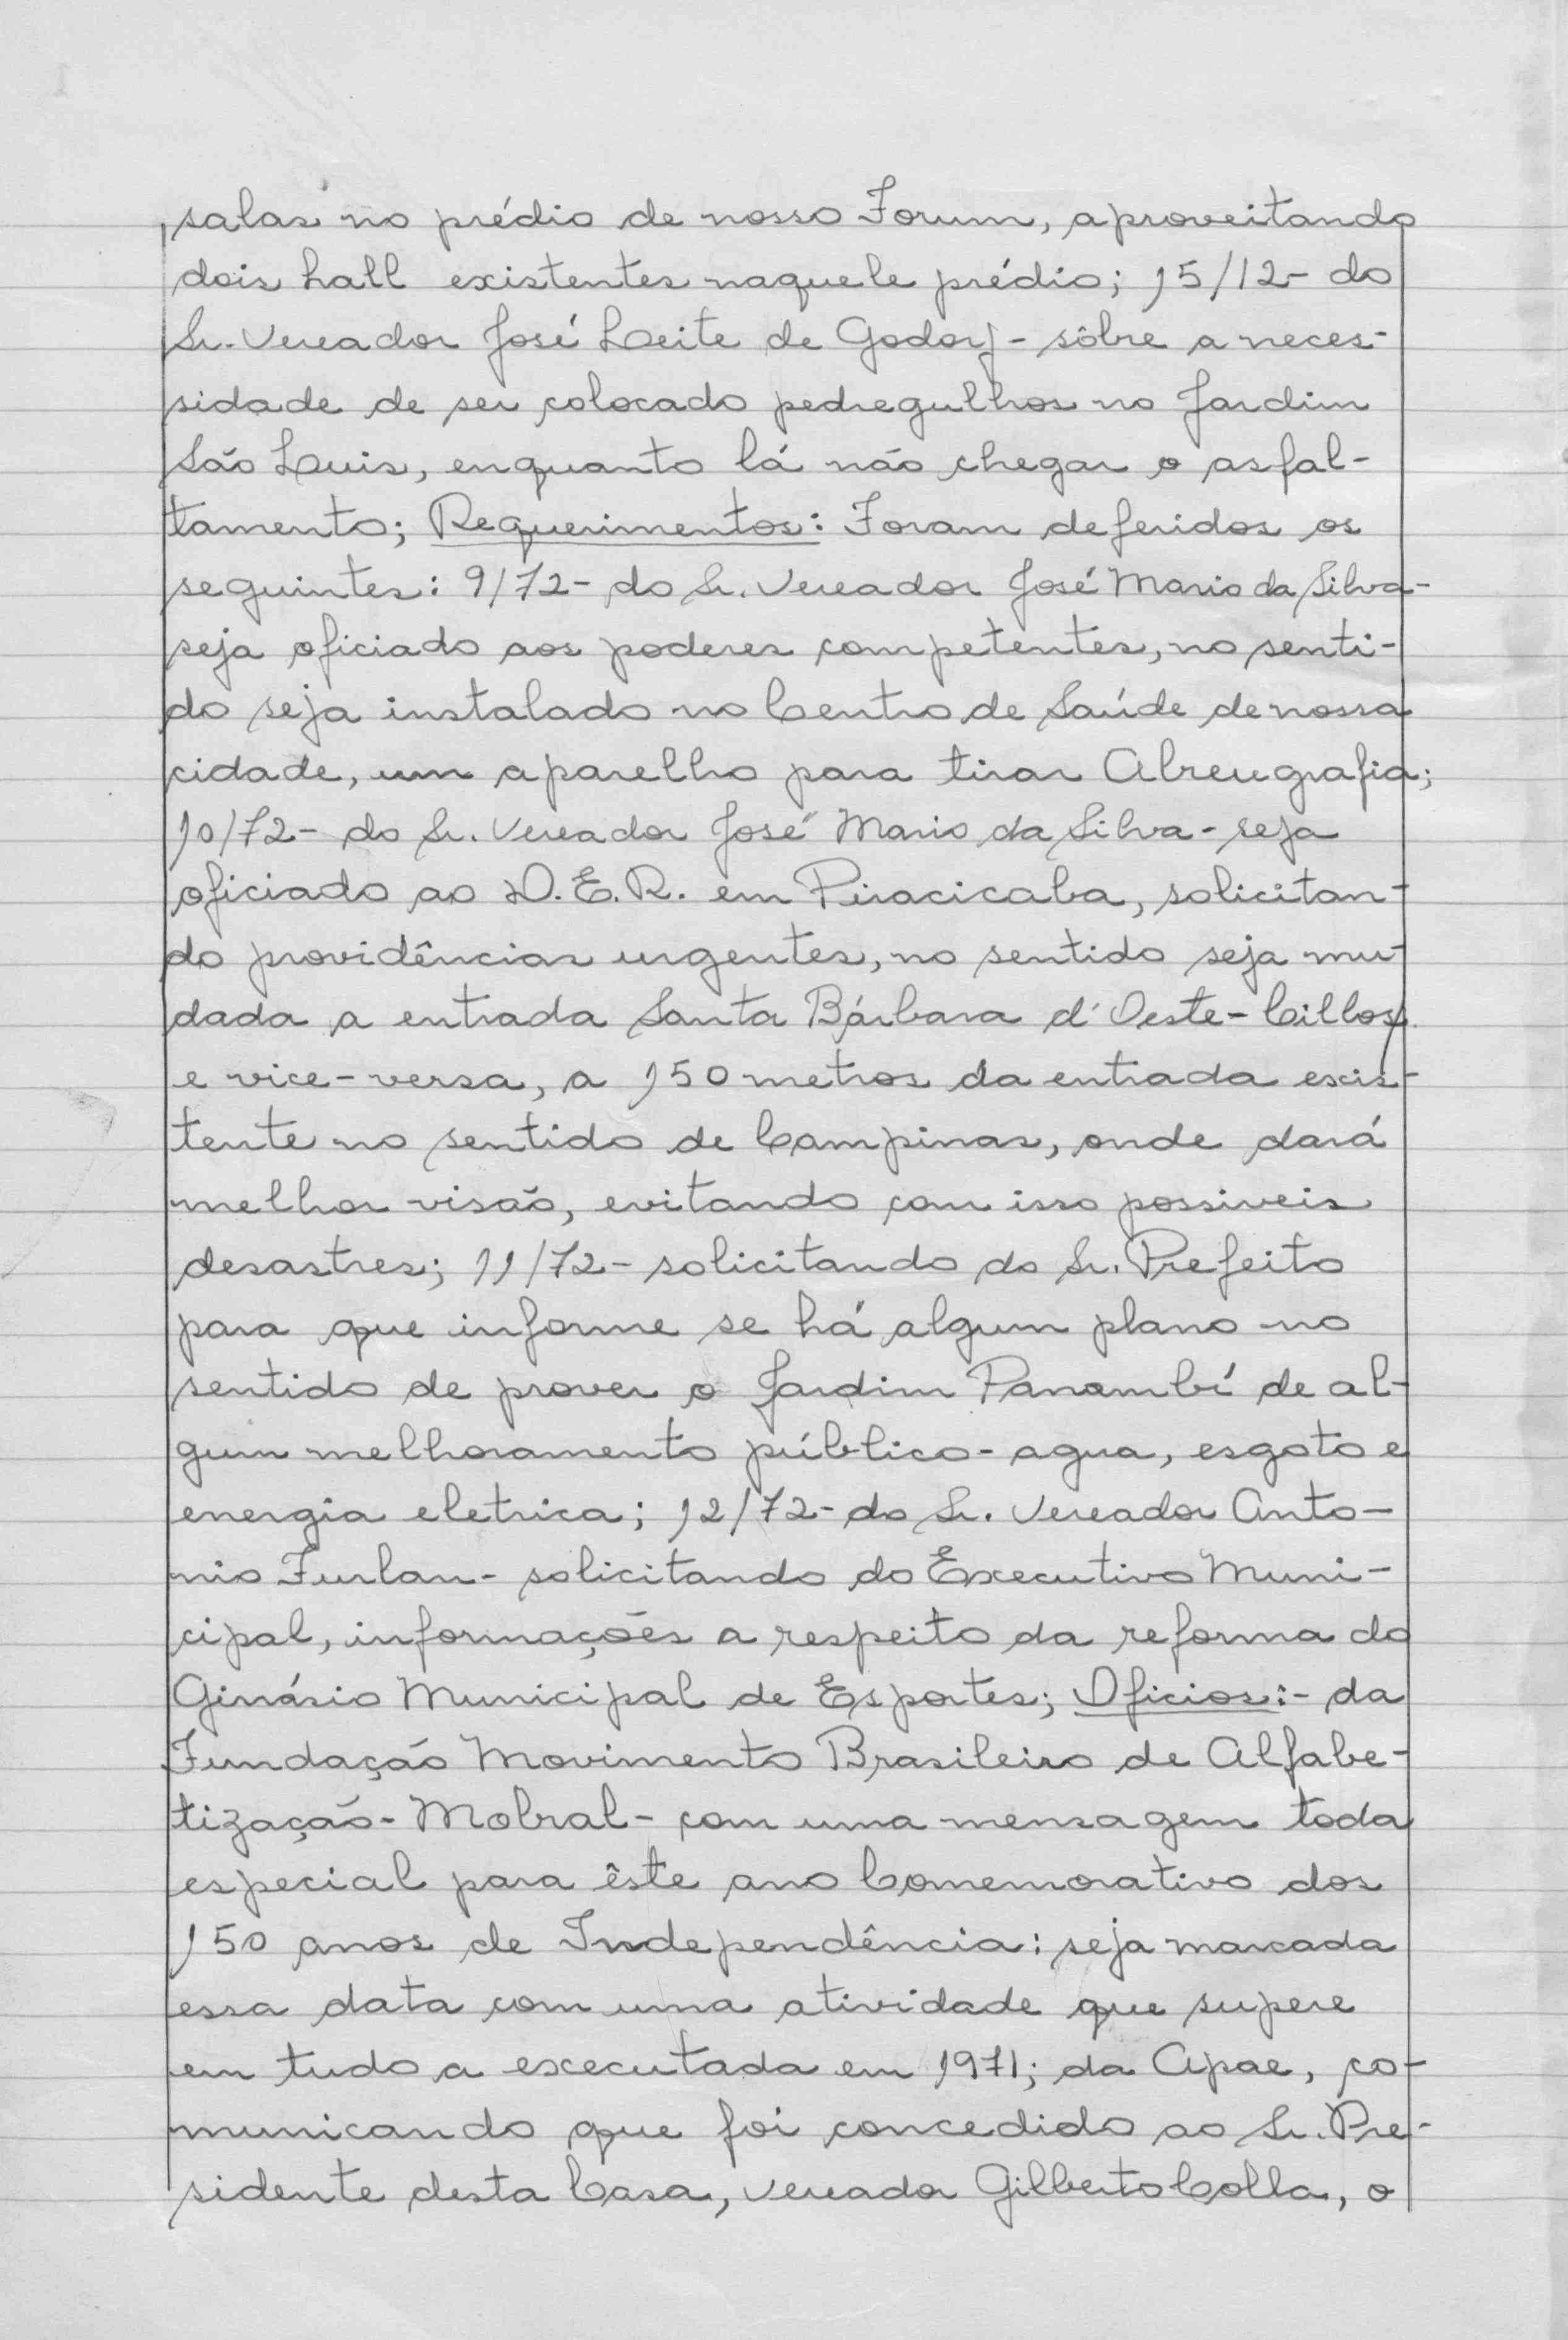 salas no prédio de nosso Forum, aproveitando
dois hall existentes naquele prédio; 15/12- do
Sr. Vereador José Leite de Godoy - sôbre a neces-
sidade de ser colocado pedregulhos no Jardim
São Luis, enquanto lá não chegar o asfal-
tamento; Requerimentos: Foram deferidos os
seguintes: 9/72- do Sr. Vereador José Mario da Silva-
seja oficiado aos poderes competentes, no senti-
do seja instalado no Centro de Saúde de nossa
cidade, um aparelho para tirar Abreugrafia;
10/72- do Sr. Vereador José Mario da Silva- seja
oficiado ao D.E.R. em Piracicaba, solicitan-
do providências urgentes, no sentido seja mu-
dada a entrada Santa Bárbara d'Oeste- Cillos,
e vice-versa, a 150 metros da entrada exis-
tente no sentido de Campinas, onde dará
melhor visão, evitando com isso possiveis
desastres; 11/72- solicitando do Sr. Prefeito
para que informe se há algum plano no
sentido de prover o Jardim Panambí de al-
gum melhoramento público- agua, esgoto e
energia eletrica; 12/72- do Sr. Vereador Anto-
nio Furlan- solicitando do Executivo Muni-
cipal, informações a respeito da reforma do
Ginásio Municipal de Esportes; Oficios:- da
Fundação Movimento Brasileiro de Alfabe-
tização- Mobral- com uma mensagem toda
especial para êste ano Comemorativo dos
150 anos de Independência: seja marcada
essa data com uma atividade que supere
em tudo a executada em 1971; da Apae, co-
municando que foi concedido ao Sr. Pre-
sidente desta Casa, vereador Gilberto Colla, o